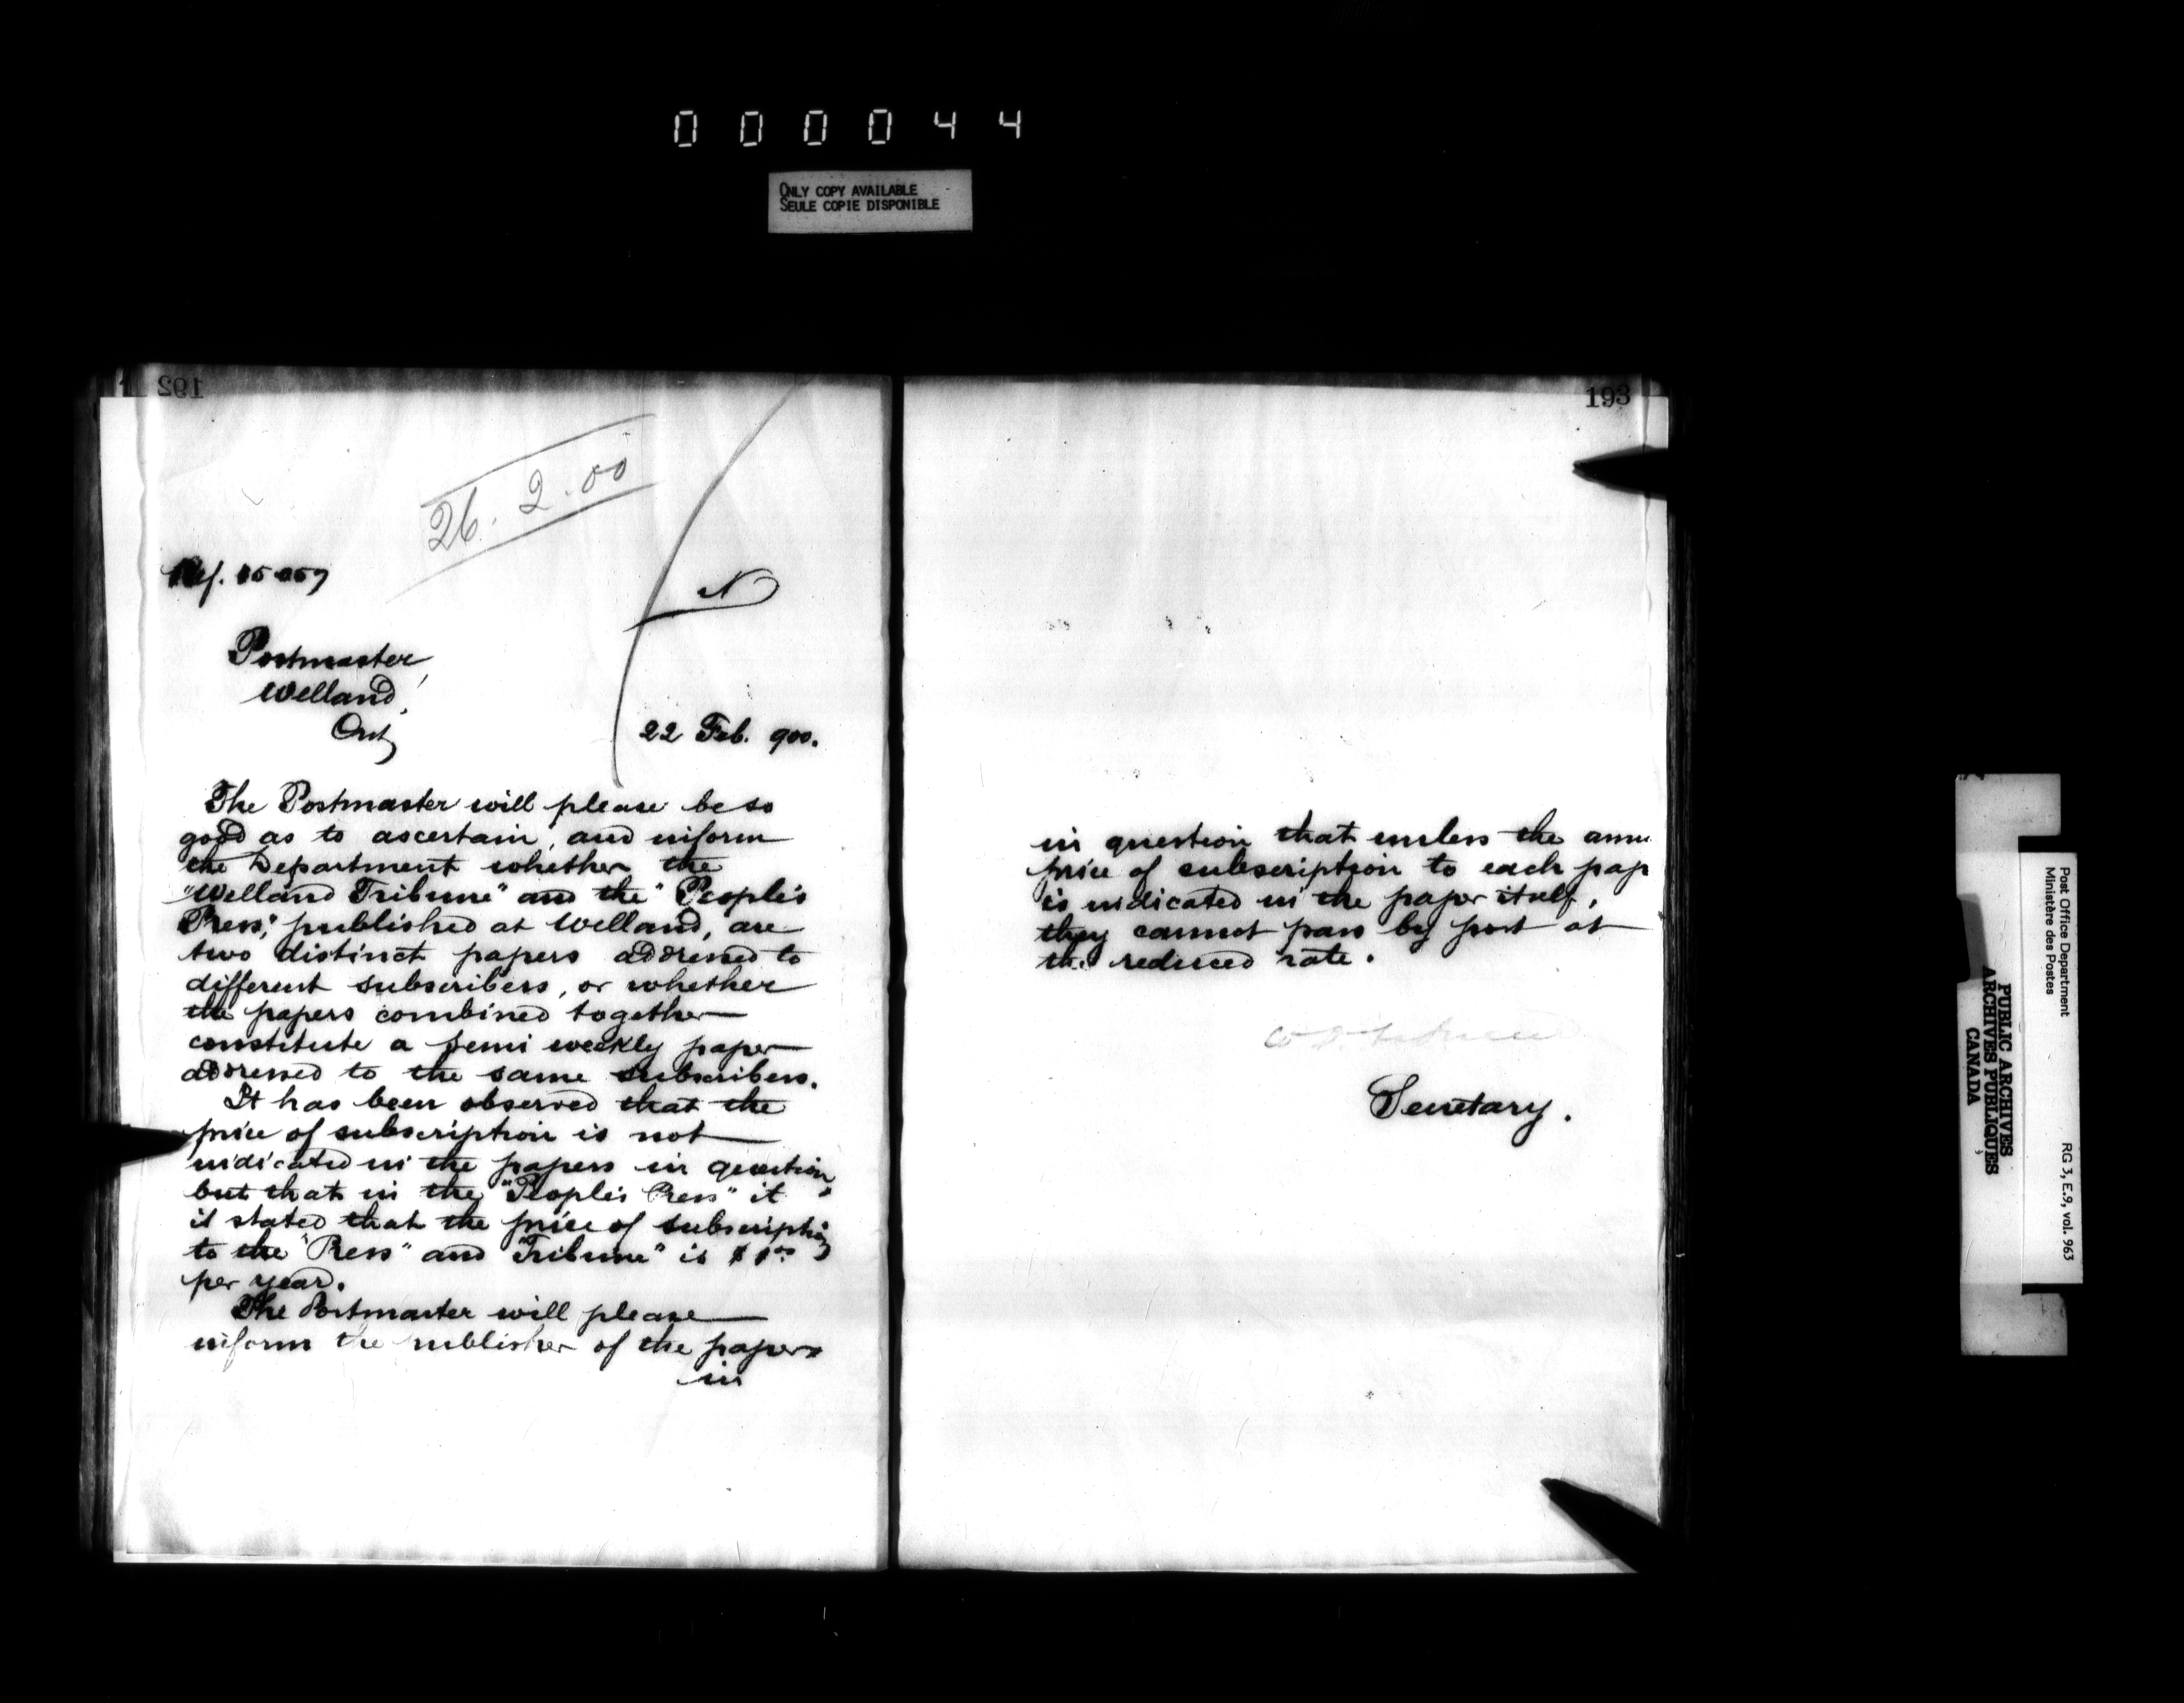 0 0 0 0 4 4
ONLY COPY AVAILABLE
SEULE COPIE DISPONIBLE
192
26. 2. 00
Ref.
N
Postmaster
Welland,
Ont
22 Feb. 900.
The Postmaster will please be so
good as to ascertain, and inform
the Department whether the
"Welland Tribune" and the "People's
Press", published at Welland, are
two distinct papers addressed to
different subscribers, or whether
the papers combined together
constitute a semi weekly paper
addressed to the same subscribers.
It has been observed that the
price of subscription is not
indicated in the papers in question,
but that in the "People's Press" it
is stated that the price of subscription
to the "Press" and "Tribune" is $1.00
per year.
The Postmaster will please
inform the publisher of the papers
in
193
in question that unless the annu
price of subscription to each pap
is indicated in the paper itself,
they cannot pass by post at
the reduced rate.
Secretary.
Post Office Department
Ministère des Postes
RG 3, E.9, vol. 963
PUBLIC ARCHIVES
ARCHIVES PUBLIQUES
CANADA